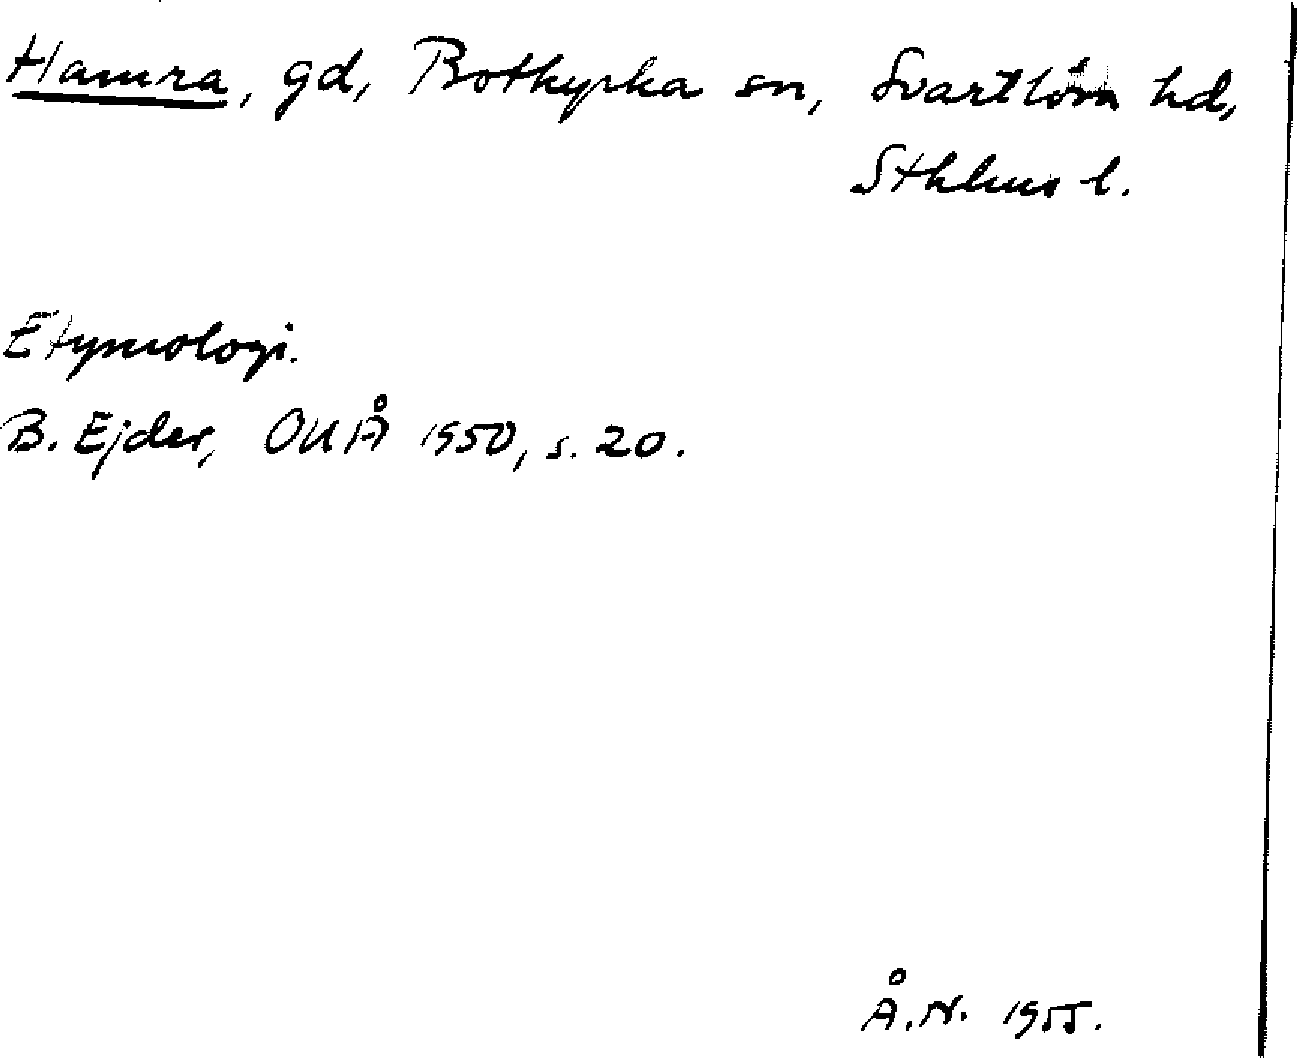 Hamra, gd, Botkyrka sn, Svartlösa hd,
Sthlms l.
Etymologi.
B. Ejder, OUÅ 1950, s. 20.
Å.N. 1955.